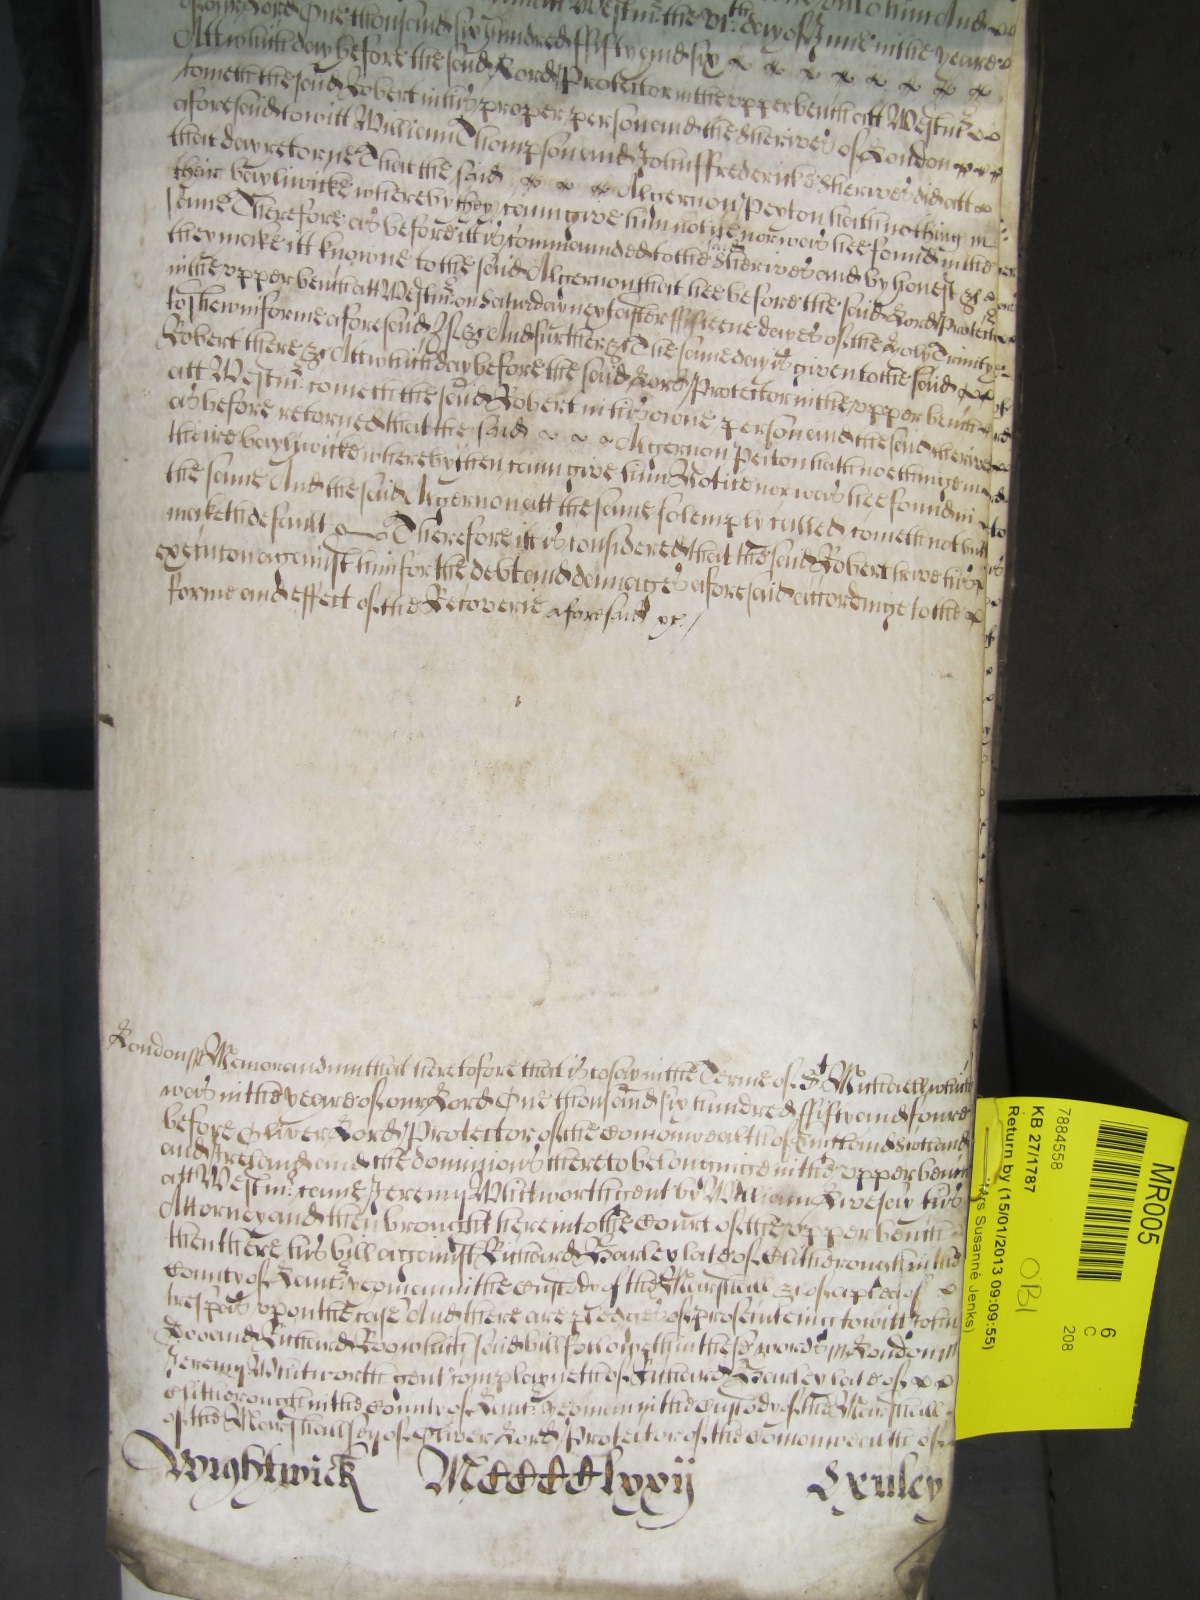 of our Lord One thousand six hundred ffifty and six
Att which day before the said Lord Protector in the upper bench att Westmr
cometh the said Robert in his proper person and the Sheriwes of London
aforesaid to witt William Thompson and John Frederick Sheriwes did att
that day retorne That the said Algernon Peyton hath nothing in
their bayliwicke whereby they can give him notice nor was hee found in the
same Therefore as before itt is commaunded to the Sheriwes and by honest &c
they make itt knowne to the said Algernon that hee before the said Lord Protector
in the upper bench att Westmr on Saturday next after ffifteene dayes of the holy Trinity
to shew in forme aforesaid if &c And further &c The same day is given to the said
Robert there &c Att which day before the said Lord Protector in the upper bench
att Westmr cometh the said Robert in his owne person and the said Sheriwes
as before retorned that the said Algernon Peiton hath noethinge in
theire bayliwicke whereby they can give him Notice nor was hee found in
the same And the said Algernon att the same solemply called cometh not but
maketh default Therefore itt is considered that the said Robert have his
execution against him for the debt and damages aforesaid accordinge to the
forme and effect of the Recoverie aforesaid &c
London ss Memorandum that heretofore that is to say in the Terme of St Michaell which
was in the yeare of our Lord One thousand six hundred ffifty and foure
before Oliver Lord Protector of the Comonwealth of England Scotland
and Ireland and the dominions thereto belonginge in the upper bench
att Westmr came Jeremy Whitworth gent by William his
Attorney and then brought here into the Court of the upper bench
then there his bill against Richard Harley late of Clitherough in the
County of Lanc yeoman in the Custody of the Marshall &c of a plea of
trespas upon the case And there are pledges of prosecuteing to witt John
Doo and Richard Roo which said bill followeth in these words ss London ss
Jeremy Whitworth gent complayneth of Richard Harley late of
Clitherough in the County of Lanc yeoman in the Custody of the Marshall
of the Marshallsey of Oliver Lord Protector of the Comonwealth of
Wightwick MCCCClxxij Exuley
MR005
6
C
208
7884558
KB 27/1787
OBI
Return by (15/01/2013 09:09:55)
Mrs Susanne Jenks)